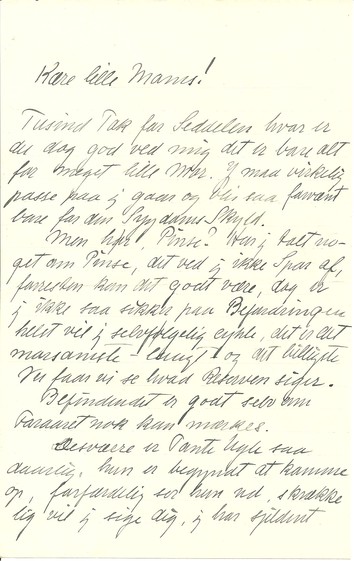 Kære lille Mams!
Tusind Tak for Seddelen hvor er
du dog god ved mig det er bare alt
for meget lille Mor. I maa virkelig
passe paa jeg gaar og blir saa forvænt
bare for den Sygdoms Skyld.
Men hør, Pinse? Har I talt no-
get om Pinse, det ved jeg ikke Spor af,
forresten kan det godt være, dog er
jeg ikke saa sikker paa Befordringen
helst vil jeg selvfølgelig cykle, det er det
morsomste og det billigste
Nu faar vi se hvad siger.
Befindendet er godt selv om
Foraaret nok kan mærkes.
Desværre er Tante saa
daarlig, hun er begyndt at komme
op, forfærdelig ser hun ud, skrække
lig vil jeg sige dig, jeg har sjældent